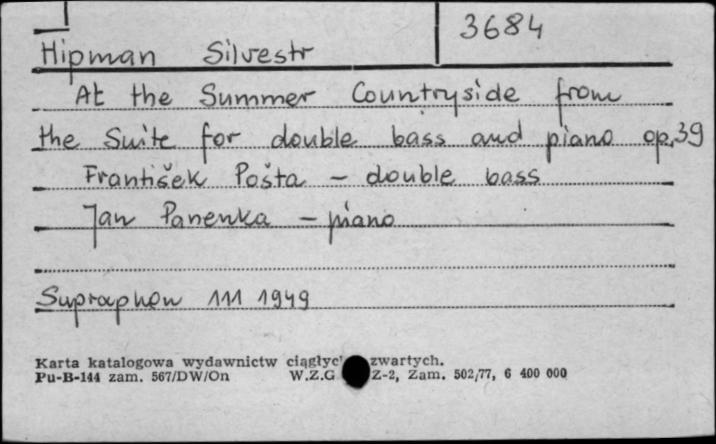 3684
Hipman Silvestr
At the Summer Countryside from
the Suite for double bass and piano op.39
František Pošta – double bass
Jan Panenka – piano
Supraphon 111 1949
Karta katalogowa wydawnictw ciągłyc zwartych.
Pu-B-144 zam. 567/DW/On W.Z.G Z-2, Zam. 502/77, 6 400 000